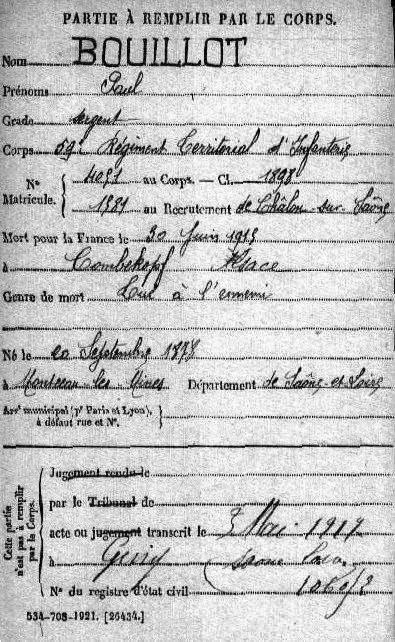 PARTIE À REMPLIR PAR LE CORPS.
Nom BOUILLOT
Prénoms Paul
Grade sergent
Corps 59e Régiment Territorial d'Infanterie
No Matricule. 4051 au Corps. — Cl. 1898
1581 au Recrutement de Châlon-sur-Saône
Mort pour la France le 30 Juin 1915
à Combekopf Alsace
Genre de mort Tué à l'ennemi
Né le 20 Septembre 1878
à Montceau-les-Mines Département de Saône-et-Loire
Arrt municipal (pr Paris et Lyon),
à défaut rue et No.
Cette partie n'est pas à remplir par le Corps.
Jugement rendu le
par le Tribunal de
acte ou jugement transcrit le 3 Mai 1917
à Saone
No du registre d'état civil
534-708-1921. [26434.]